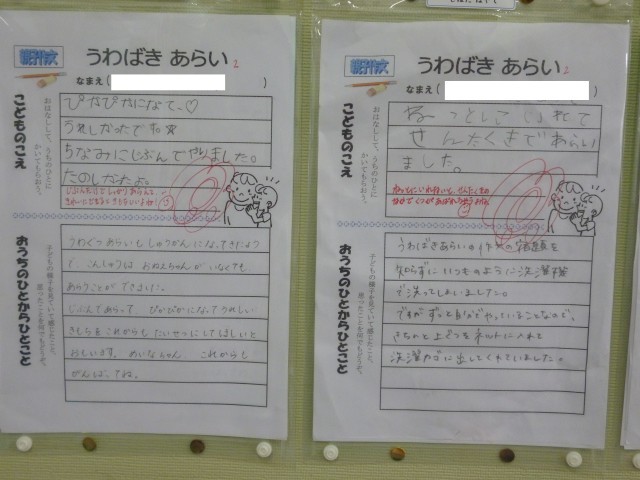 親子作文
うわばき あらい
なまえ( )
こどものこえ
おはなしして、うちのひとに
かいてもらおう。
ぴかぴかになて、♡
うれしかったです。
ちなみにじぶんでやりました。
たのしかたよ。
おうちのひとからひとこと
子どもの様子を見ていて感じたこと、
思ったことを何でもどうぞ。
うわぐつあらいもしゅうかんになってきたようで
こんしゅうは おねえちゃんが いなくても
あらうことが できました。
じぶんであらって、ぴかぴかになってうれしい
きもちをこれからも たいせつにしてほしいと
おもいます。 これからも
がんばってね。
親子作文
うわばき あらい
なまえ( )
こどものこえ
おはなしして、うちのひとに
かいてもらおう。
ねっとにいれて
せんたくきであらい
ました。
おうちのひとからひとこと
子どもの様子を見ていて感じたこと、
思ったことを何でもどうぞ。
うわばきあらいの作文の宿題を
知らずに いつものように洗濯機
で洗ってしまいました。
ですが ずっと自分でやっていることなので、
きちんと上ぐつをネットに入れて
洗濯カゴに出してくれていました。